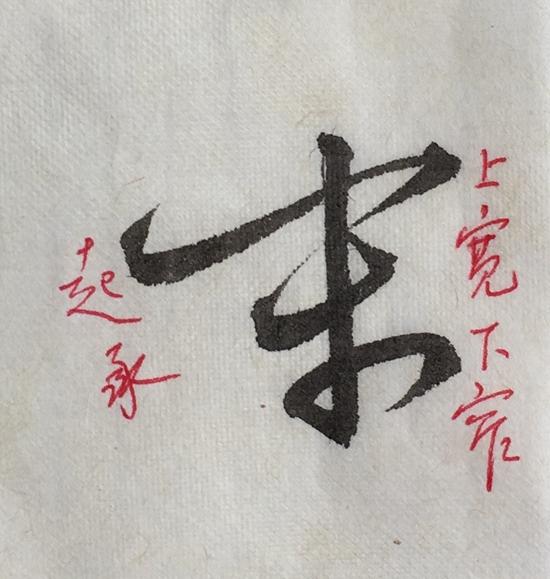 上宽下窄
末
起承